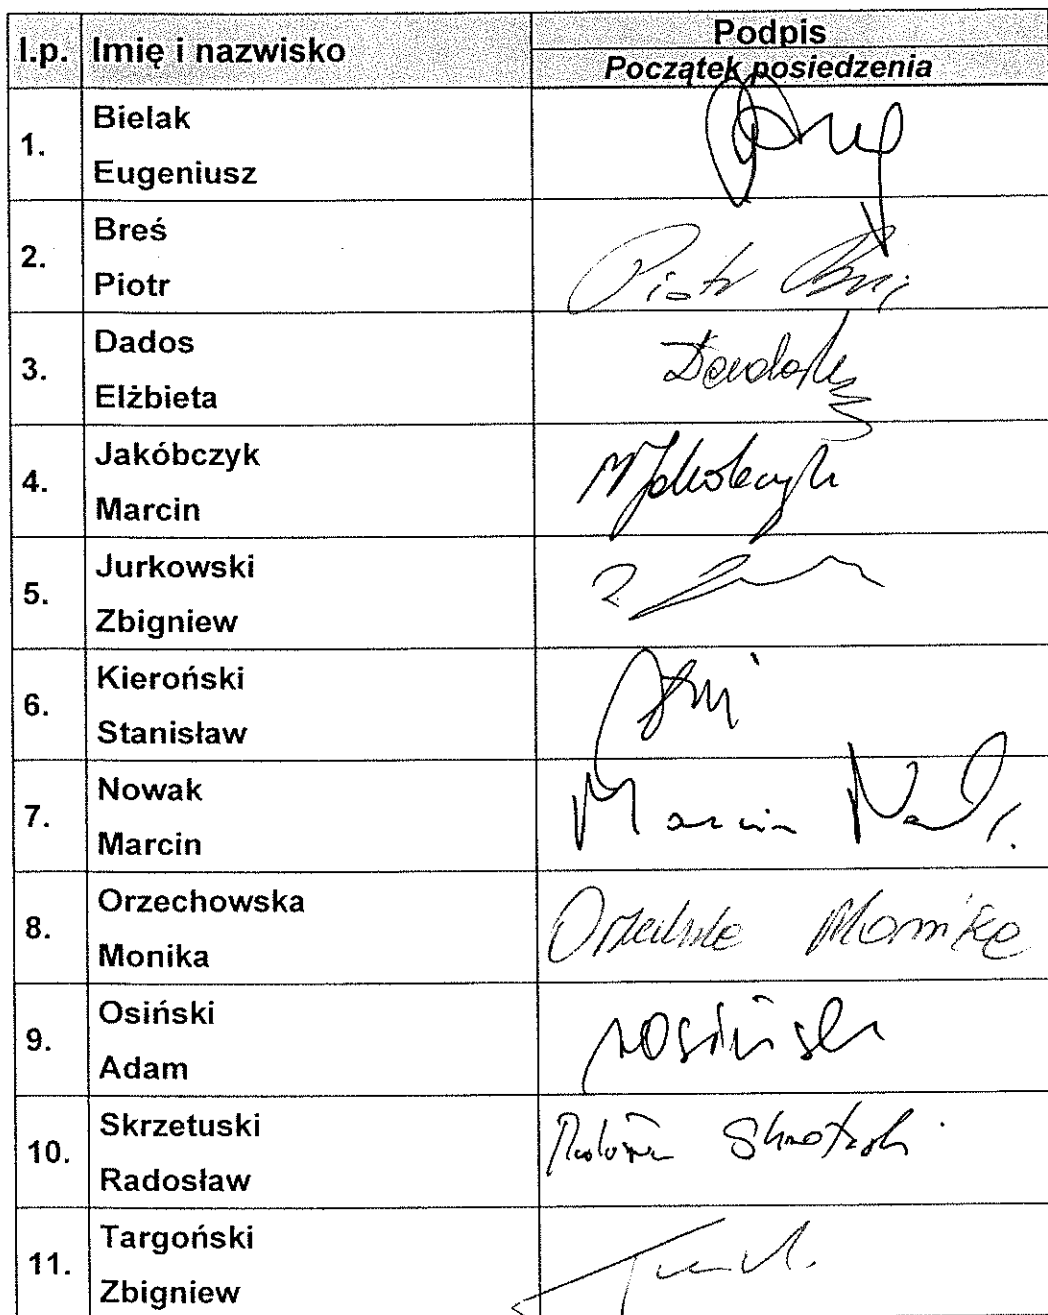 l.p. Imię i nazwisko Podpis
Początek posiedzenia
1. Bielak
Eugeniusz
2. Breś
Piotr Piotr
3. Dados
Elżbieta
4. Jakóbczyk
Marcin M Jakóbczyk
5. Jurkowski
Zbigniew
6. Kieroński
Stanisław
7. Nowak
Marcin Marcin Nowak
8. Orzechowska
Monika Monika
9. Osiński
Adam AOsiński
10. Skrzetuski
Radosław Radosław Skrzetuski
11. Targoński
Zbigniew